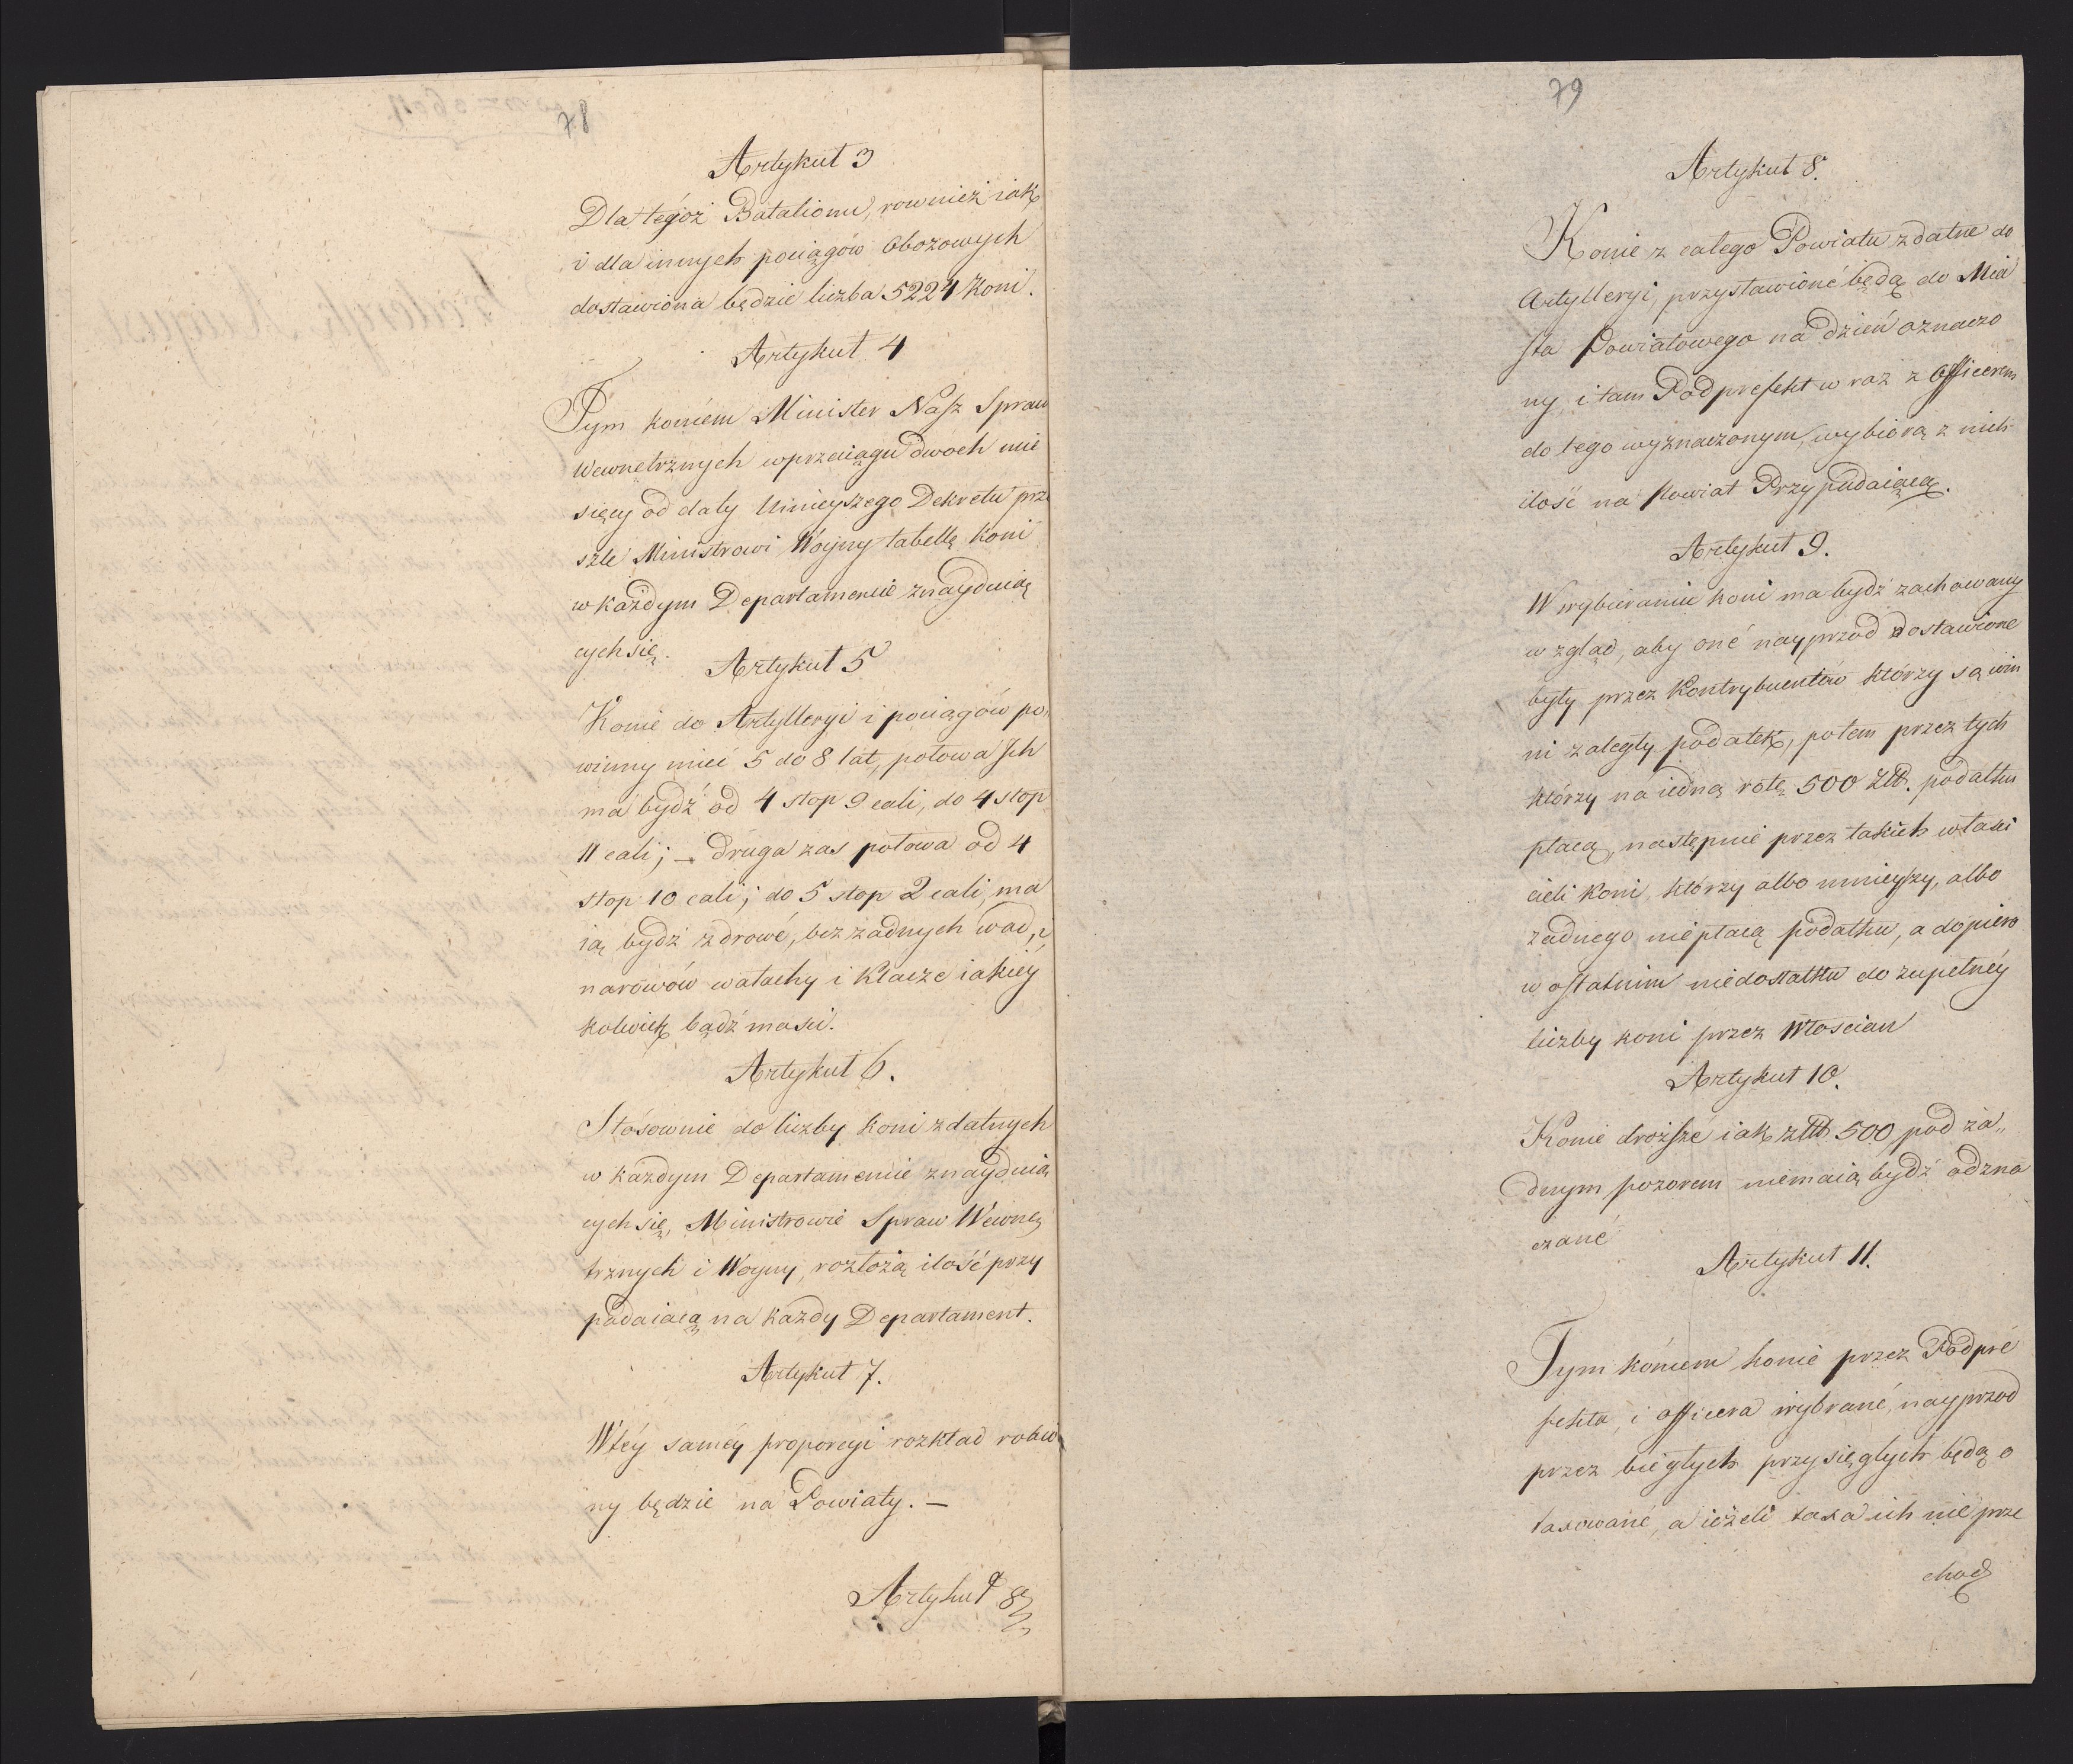 78
Artykuł 3
Dla tegoż Batalionu, rownież iak
i dla innych pociągów Obozowych
dostawiona będzie liczba 5224 Koni.
Artykuł 4
Tym końcem Minister Nasz Spraw
Wewnetrznych w przeciągu dwoch mie
sięcy od daty Ninieyszego Dekretu prze
szle Ministrowi Woyny tabellę koni
w każdym Departamencie znayduią
cych się.
Artykuł 5
Konie do Artylleryi i pociągów po„
winny mieć 5 do 8 lat, połowa Jch
ma bydź od 4 stop 9 cali, do 4 stop
11 cali; – druga zas połowa od 4
stop 10 cali; do 5 stop 2 cali, ma
ią bydź zdrowé, bez żadnych wad, i
narowów wałachy i Klacze iakiéy
kolwiek bądź masci.
Artykuł 6.
Stósownie do liczby koni zdatnych
w każdym Departamencie znayduią
cych się, Ministrowie Spraw Wewnę
trznych i Woyny, rozłożą ilość przy
padaiacą na każdy Departament.
Artykuł 7.
W téy saméy proporcyi rozkład robio
ny będzie na Powiaty. –
Artykuł 8
79
Artykuł 8.
Konie z całego Powiatu zdatne do
Artylleryi, przystawioné będą do Mia
sta Powiatowego na dzień oznaczo
ny i tam Podprefekt w raz z Officerem
do tego wyznaczonym, wybiorą z nich
ilość na Powiat Przypadaiącą.
Artykuł 9.
W wybieraniu koni ma bydź zachowany
wzgląd, aby oné nayprzod dostawione
były przez Kontrybuentów którzy są win
ni zaległy podatek, potem przez tych
którzy na iedną ratę 500 Złł. podatku
płacą, następnie przez takich własci
cieli koni, którzy albo mnieyszy, albo
żadnego nie płacą podatku, a dopiero
w ostatnim niedostatku do zupełnéy
liczby koni przez Włoscian
Artykuł 10.
Konie droższé iak złł. 500, pod ża„
dnym pozorem niemaią bydź odzna
czané
Artykuł 11.
Tym końcem konie przez Podpre
fekta, i officera wybrané, nayprzod
przez biegłych przysięgłych będą o
taxowané, a ieżeli taxa ich nie prze
chodz